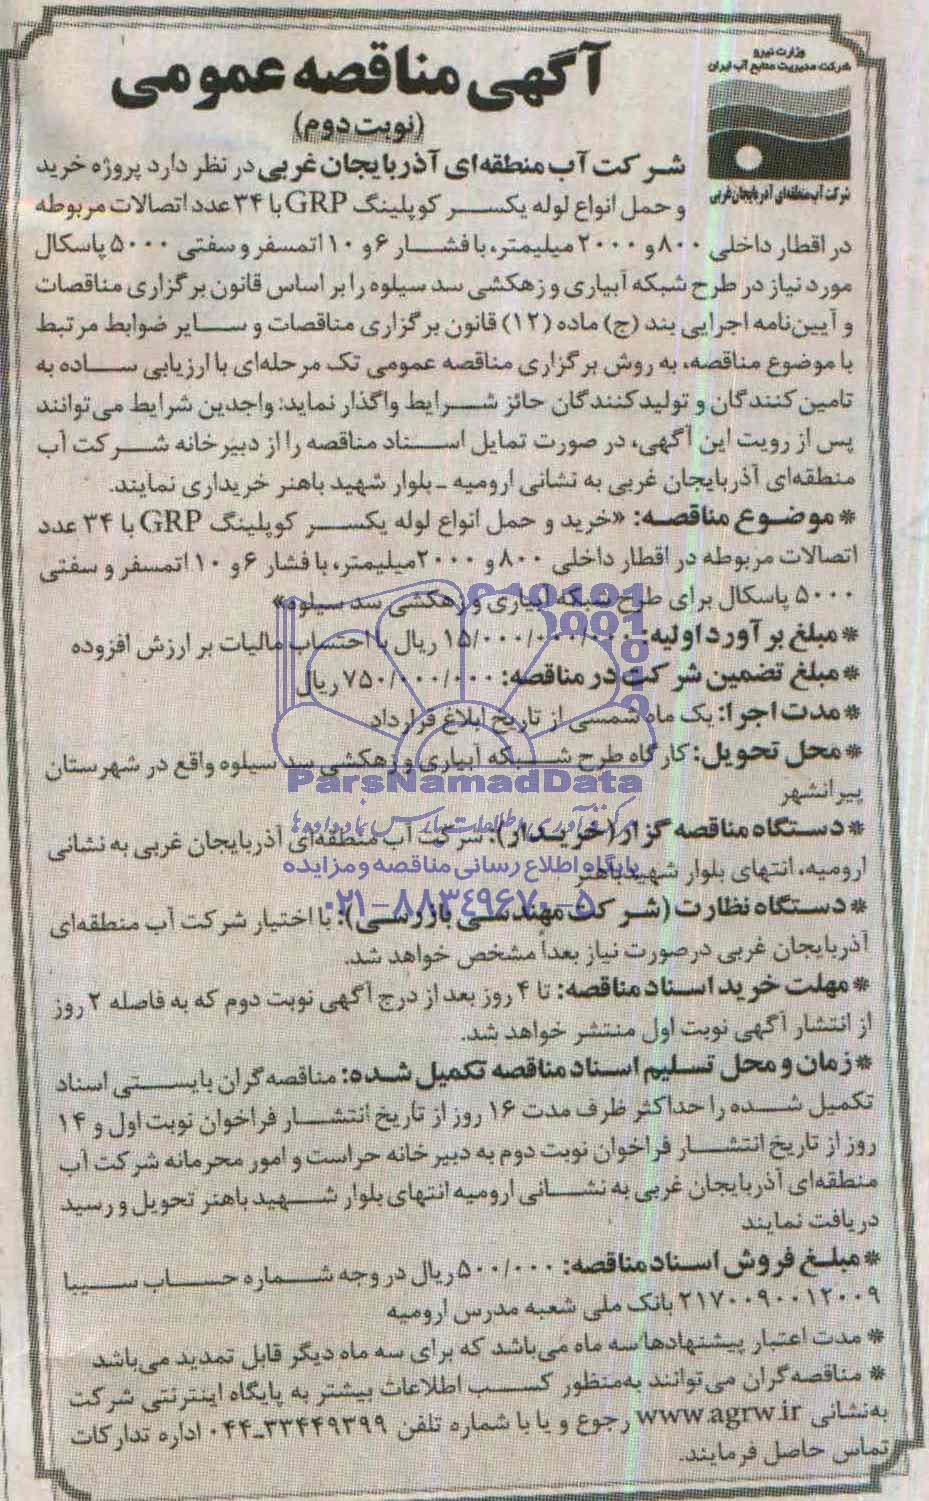 وزارت نیرو
شرکت مدیریت منابع آب ایران
شرکت آب منطقه‌ای آذربایجان غربی
آگهی مناقصه عمومی
(نوبت دوم)
شرکت آب منطقه‌ای آذربایجان غربی در نظر دارد پروژه خرید
و حمل انواع لوله یکسر کوپلینگ GRP با ۳۴ عدد اتصالات مربوطه
در اقطار داخلی ۸۰۰ و ۲۰۰۰ میلیمتر، با فشار ۶ و ۱۰ اتمسفر و سفتی ۵۰۰۰ پاسکال
مورد نیاز در طرح شبکه آبیاری و زهکشی سد سیلوه را بر اساس قانون برگزاری مناقصات
و آیین‌نامه اجرایی بند (ج) ماده (۱۲) قانون برگزاری مناقصات و سایر ضوابط مرتبط
با موضوع مناقصه، به روش برگزاری مناقصه عمومی تک مرحله‌ای با ارزیابی ساده به
تامین کنندگان و تولید کنندگان حائز شرایط واگذار نماید: واجدین شرایط می‌توانند
پس از رویت این آگهی، در صورت تمایل اسناد مناقصه را از دبیرخانه شرکت آب
منطقه‌ای آذربایجان غربی به نشانی ارومیه ـ بلوار شهید باهنر خریداری نمایند.
* موضوع مناقصه: «خرید و حمل انواع لوله یکسر کوپلینگ GRP با ۳۴ عدد
اتصالات مربوطه در اقطار داخلی ۸۰۰ و ۲۰۰۰ میلیمتر، با فشار ۶ و ۱۰ اتمسفر و سفتی
۵۰۰۰ پاسکال برای طرح شبکه آبیاری و زهکشی سد سیلوه»
* مبلغ برآورد اولیه: ۱۵/۰۰۰/۰۰۰/۰۰۰ ریال با احتساب مالیات بر ارزش افزوده
* مبلغ تضمین شرکت در مناقصه: ۷۵۰/۰۰۰/۰۰۰ ریال
* مدت اجرا: یک ماه شمسی از تاریخ ابلاغ قرارداد
* محل تحویل: کارگاه طرح شبکه آبیاری و زهکشی سد سیلوه واقع در شهرستان
پیرانشهر
* دستگاه مناقصه گزار (خریدار): شرکت آب منطقه‌ای آذربایجان غربی به نشانی
ارومیه، انتهای بلوار شهید باهنر
* دستگاه نظارت (شرکت مهندسی بازرسی): با اختیار شرکت آب منطقه‌ای
آذربایجان غربی درصورت نیاز بعداً مشخص خواهد شد.
* مهلت خرید اسناد مناقصه: تا ۴ روز بعد از درج آگهی نوبت دوم که به فاصله ۲ روز
از انتشار آگهی نوبت اول منتشر خواهد شد.
* زمان و محل تسلیم اسناد مناقصه تکمیل شده: مناقصه گران بایستی اسناد
تکمیل شده را حداکثر ظرف مدت ۱۶ روز از تاریخ انتشار فراخوان نوبت اول و ۱۴
روز از تاریخ انتشار فراخوان نوبت دوم به دبیرخانه حراست و امور محرمانه شرکت آب
منطقه‌ای آذربایجان غربی به نشانی ارومیه انتهای بلوار شهید باهنر تحویل و رسید
دریافت نمایند
* مبلغ فروش اسناد مناقصه: ۵۰۰/۰۰۰ ریال در وجه شماره حساب سیبا
۲۱۷۰۰۹۰۰۱۲۰۰۹ بانک ملی شعبه مدرس ارومیه
* مدت اعتبار پیشنهادها سه ماه می‌باشد که برای سه ماه دیگر قابل تمدید می‌باشد
* مناقصه گران می‌توانند به‌منظور کسب اطلاعات بیشتر به پایگاه اینترنتی شرکت
به‌نشانی www.agrw.ir رجوع و یا با شماره تلفن ۳۳۴۴۹۳۹۹-۰۴۴ اداره تدارکات
تماس حاصل فرمایند.
ParsNamadData
مرکز فرآوری اطلاعات پارس نماد داده‌ها
پایگاه اطلاع رسانی مناقصه و مزایده
۰۲۱-۸۸۳۴۹۶۷۰-۵